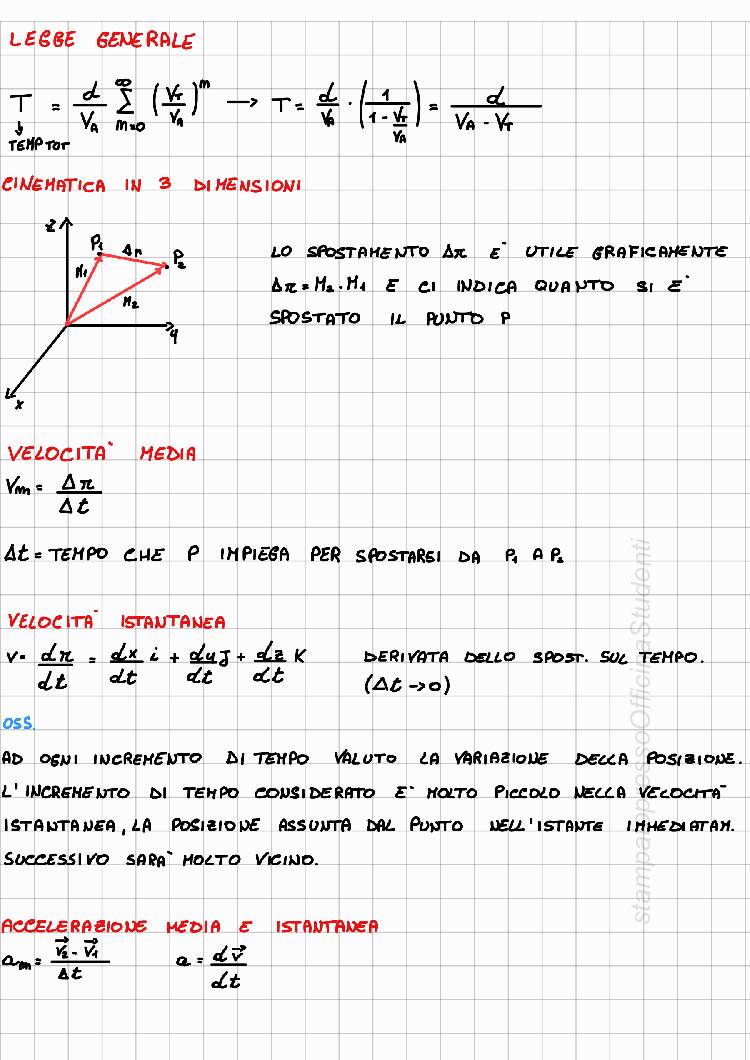 LEGGE GENERALE
T = d/V_A ∑_{m=0}^{∞} (V_T/V_A)^m → T = d/V_A · (1/(1 - V_T/V_A)) = d/(V_A - V_T)
↓
TEMP TOT
CINEMATICA IN 3 DIMENSIONI
z
P₁ Δr P₂
r₁
r₂
y
x
LO SPOSTAMENTO Δr E` UTILE GRAFICAMENTE
Δr = r₂ - r₁ E CI INDICA QUANTO SI E`
SPOSTATO IL PUNTO P
VELOCITA` MEDIA
Vm = Δr/Δt
Δt = TEMPO CHE P IMPIEGA PER SPOSTARSI DA P₁ A P₂
VELOCITA` ISTANTANEA
v = dr/dt = dx/dt i + dy/dt J + dz/dt K DERIVATA DELLO SPOST. SUL TEMPO.
(Δt → 0)
OSS.
AD OGNI INCREMENTO DI TEMPO VALUTO LA VARIAZIONE DELLA POSIZIONE.
L'INCREMENTO DI TEMPO CONSIDERATO E` MOLTO PICCOLO NELLA VELOCITA`
ISTANTANEA, LA POSIZIONE ASSUNTA DAL PUNTO NELL'ISTANTE IMMEDIATAM.
SUCCESSIVO SARA` MOLTO VICINO.
ACCELERAZIONE MEDIA E ISTANTANEA
am = (v⃗₂ - v⃗₁)/Δt a = dv⃗/dt